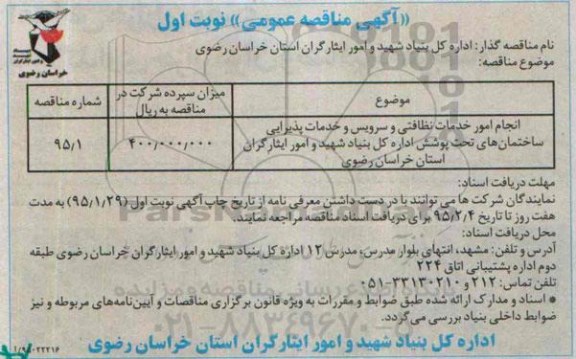 «آگهی مناقصه عمومی» نوبت اول
خراسان رضوی
نام مناقصه گذار: اداره کل بنیاد شهید و امور ایثارگران استان خراسان رضوی
موضوع مناقصه:
موضوع
میزان سپرده شرکت در مناقصه به ریال
شماره مناقصه
انجام امور خدمات نظافتی و سرویس و خدمات پذیرایی
ساختمان‌های تحت پوشش اداره کل بنیاد شهید و امور ایثارگران
استان خراسان رضوی
۴۰۰,۰۰۰,۰۰۰
۹۵/۱
مهلت دریافت اسناد:
نمایندگان شرکت ها می توانند با در دست داشتن معرفی نامه از تاریخ چاپ آگهی نوبت اول (۹۵/۱/۲۹) به مدت
هفت روز تا تاریخ ۹۵/۲/۴ برای دریافت اسناد مناقصه مراجعه نمایند.
محل دریافت اسناد:
آدرس و تلفن: مشهد، انتهای بلوار مدرس، مدرس ۱۲ اداره کل بنیاد شهید و امور ایثارگران خراسان رضوی طبقه
دوم اداره پشتیبانی اتاق ۲۲۴
تلفن تماس: ۲۱۲ و ۳۳۱۳۰۲۱۰-۰۵۱
● اسناد و مدارک ارائه شده طبق ضوابط و مقررات به ویژه قانون برگزاری مناقصات و آیین‌نامه‌های مربوطه و نیز
ضوابط داخلی بنیاد بررسی می‌گردد.
اداره کل بنیاد شهید و امور ایثارگران استان خراسان رضوی
۰۲۱-۸۸۳۴۹۶۷۰